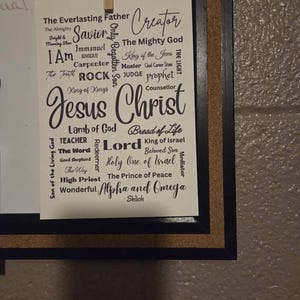 The Everlasting Father
Creator
The Almighty
Savior
Only Begotten Son
Bright &
Morning Star
The Mighty God
I Am
Immanuel
ADVOCATE
Carpenter
King of the Jews
THE LIGHT
Master
The Truth
ROCK
JUDGE
prophet
King of Kings
Counsellor
Jesus Christ
Lamb of God
Bread of Life
TEACHER
Redeemer
Lord
King of Israel
The Word
Beloved Son
Mediator
Good Shepherd
Holy One of Israel
Son of the Living God
The Way
The Prince of Peace
High Priest
Wonderful
Alpha and Omega
Shiloh